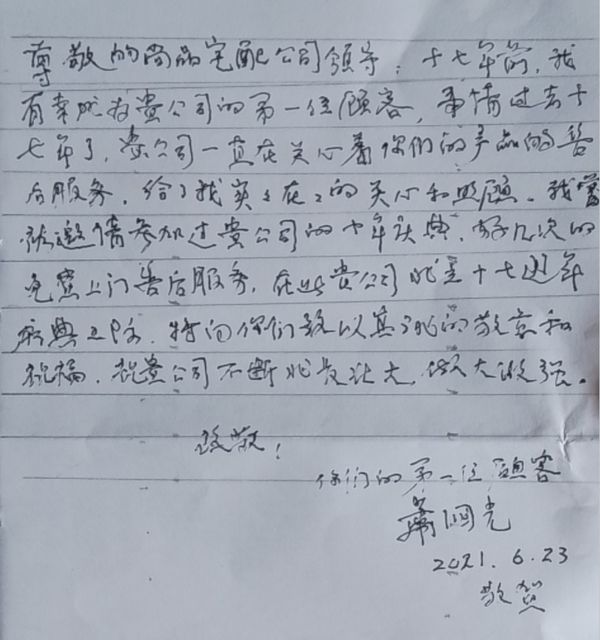 尊敬的尚品宅配公司领导：十七年前，我
有幸成为贵公司的第一位顾客，事情过去十
七年了，贵公司一直在关心着你们的产品的售
后服务，给了我实实在在的关心和照顾。我曾
被邀请参加过贵公司的十年庆典，好几次的
免费上门售后服务，在此贵公司成立十七周年
庆典之际，特向你们致以真诚的敬意和
祝福，祝贵公司不断成长壮大，做大做强。
致敬！
你们的第一位顾客
萧国光
2021.6.23
敬贺